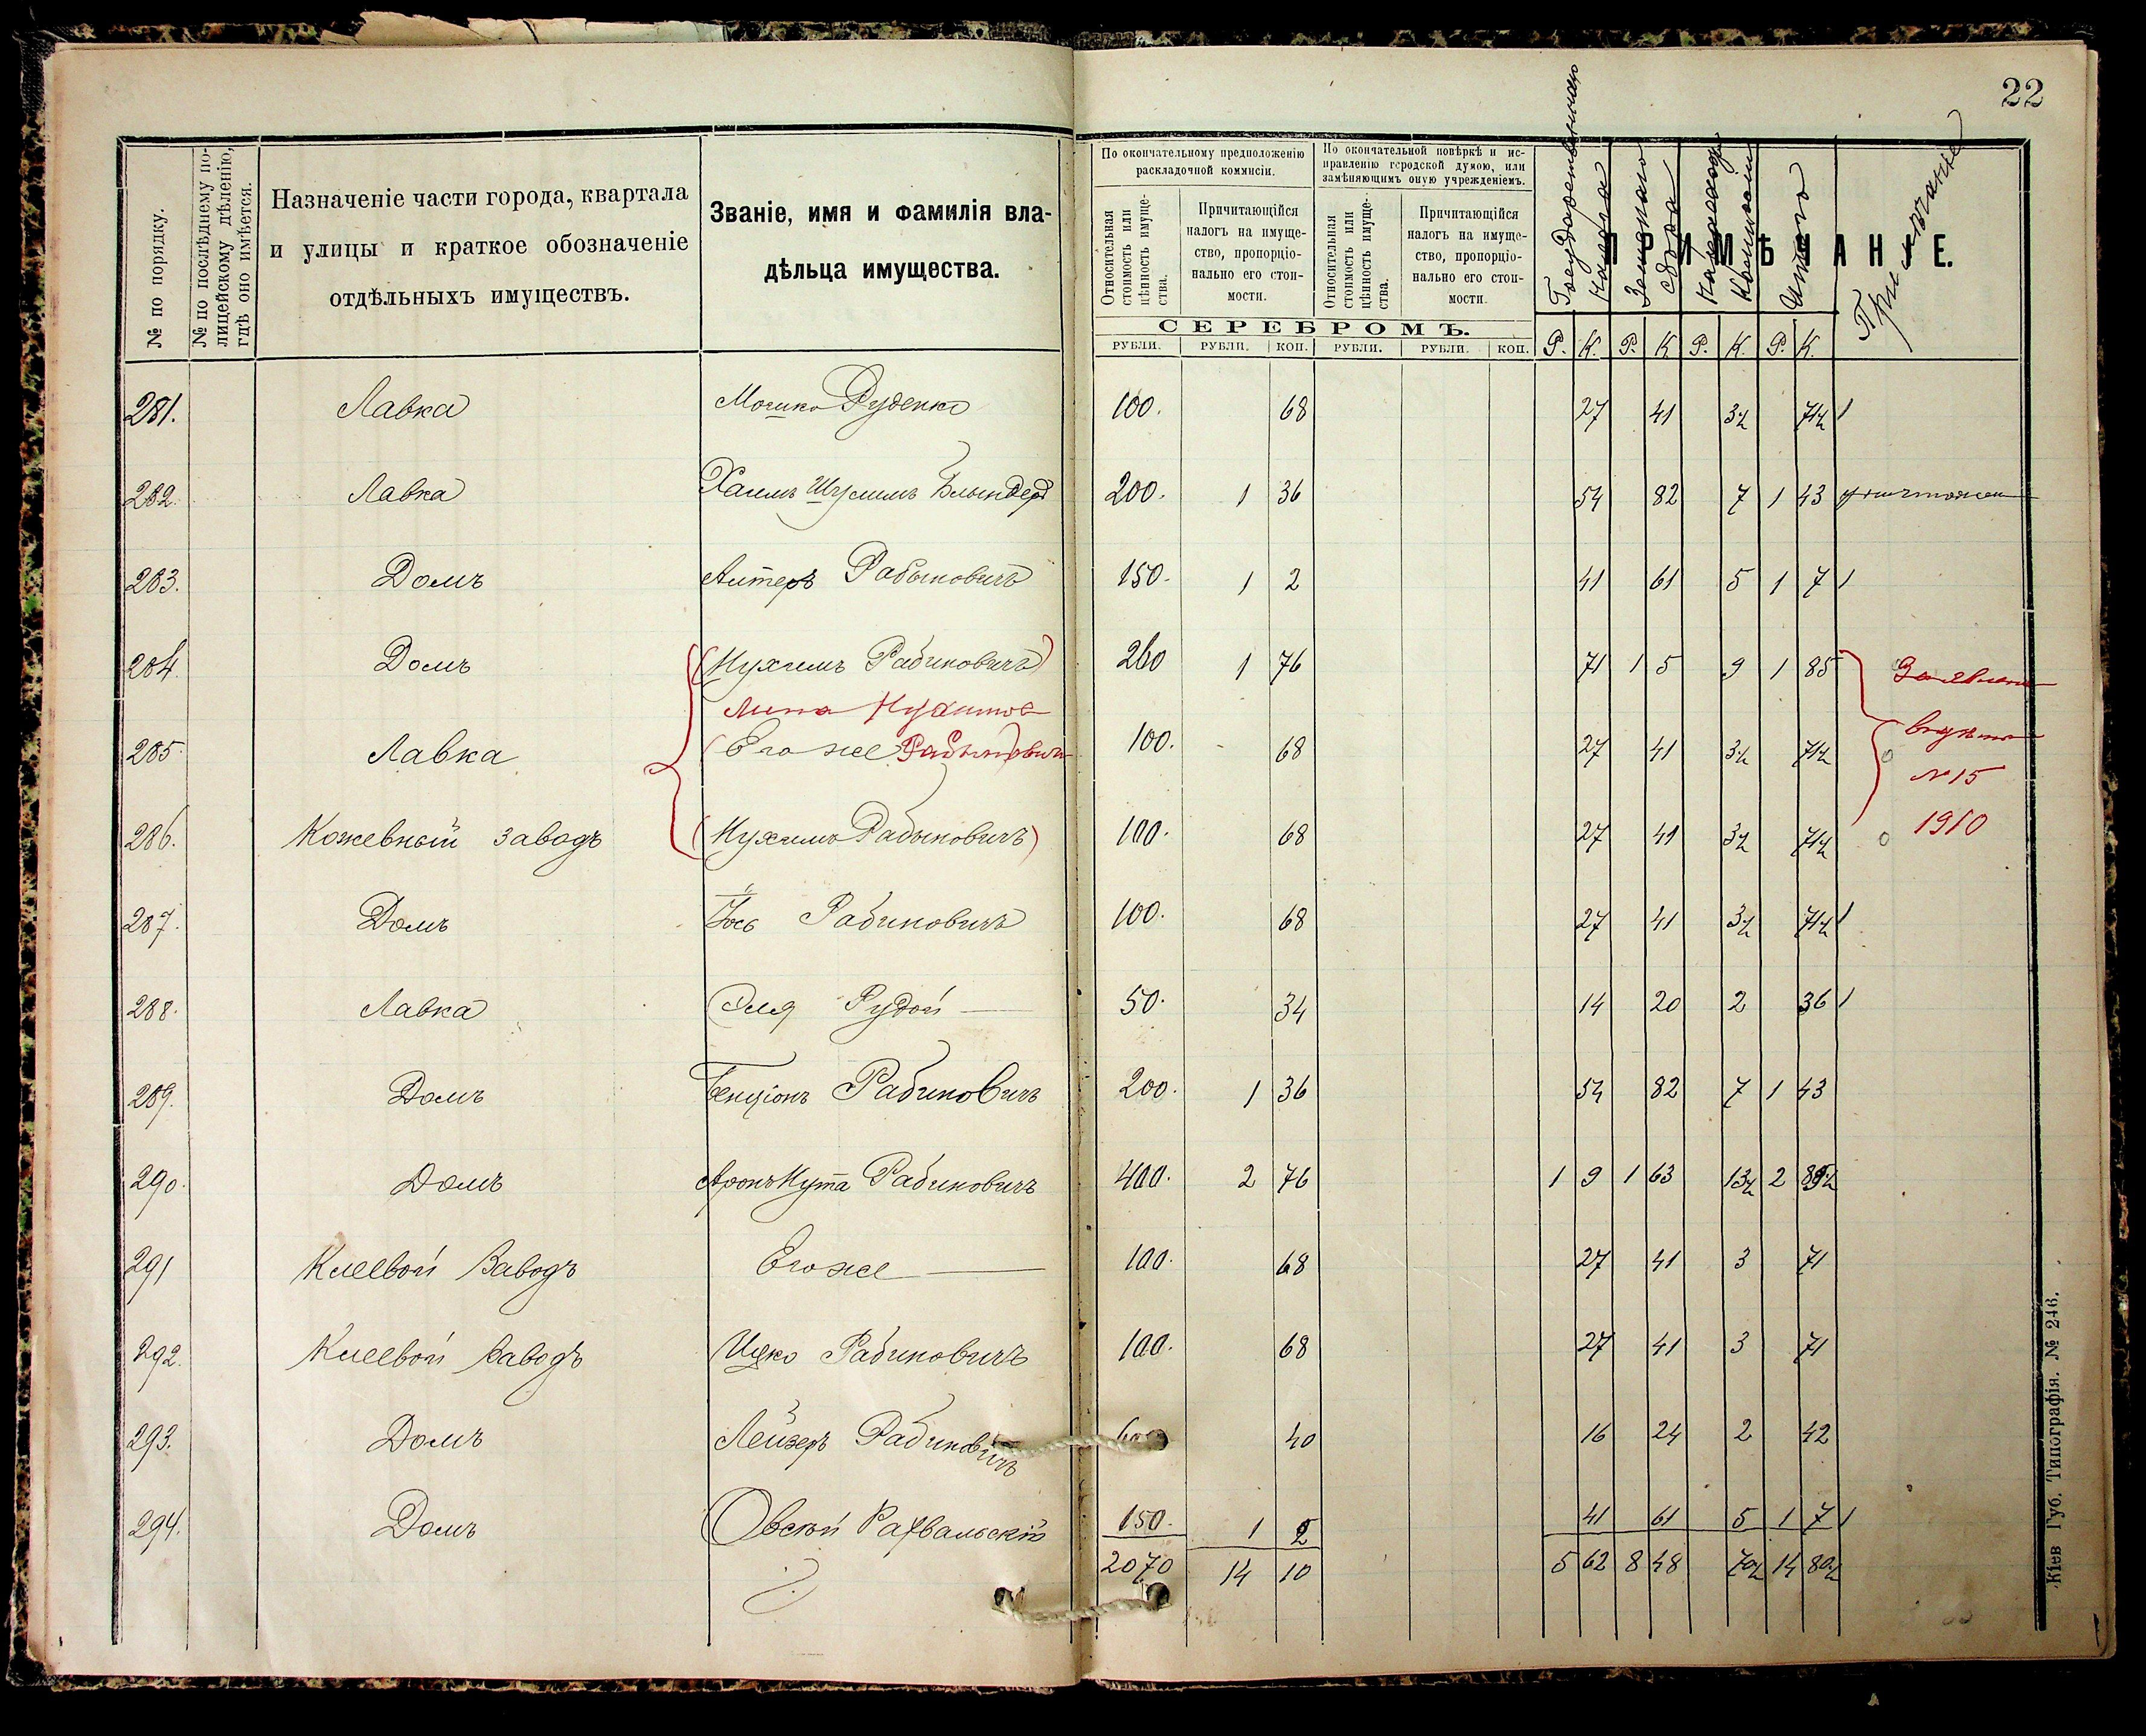 22
№ по порядку.
№ по послѣднему полицейскому дѣленію, гдѣ оно имѣется.
Назначеніе части города, квартала
и улицы и краткое обозначеніе
отдѣльныхъ имуществъ.
Званіе, имя и фамилія вла-
дѣльца имущества.
По окончательному предположенію
раскладочной коммисіи.
По окончательной повѣркѣ и ис-
правленію городской думою, или
замѣняющимъ оную учрежденіемъ.
Относительная
стоимость или
цѣнность имуще-
ства.
Причитающійся
налогъ на имуще-
ство, пропорціо-
нально его стои-
мости.
Относительная
стоимость или
цѣнность имуще-
ства.
Причитающійся
налогъ на имуще-
ство, пропорціо-
нально его стои-
мости.
СЕРЕБРОМЪ.
РУБЛИ. РУБЛИ. КОП. РУБЛИ. РУБЛИ. КОП.
ПРИМѢЧАНІЕ.
Государственнаго
налога
Земскаго
сбора
Итого
Примѣчаніе
Р. К. Р. К Р. К. Р. К.
281. Лавка Мошко Руденко 100. 68 27 41 3½ 71½ 1
282. Лавка Хаимъ Шулимъ 200. 1 36 54 82 7 1 43
283. Домъ Алтеръ Рабыновичъ 150. 1 2 41 61 5 1 7 1
284. Домъ (Нухимъ Рабиновичъ) 260 1 76 71 1 5 9 1 85
285. Лавка (Его же) Рабынович 100. 68 27 41 3½ 71½
№ 15
286. Кожевный заводъ (Нухимъ Рабыновичъ) 100. 68 27 41 3½ 71½
1910
287. Домъ Іось Рабиновичъ 100. 68 27 41 3½ 71½ 1
288. Лавка Эля Рудой 50. 34 14 20 2 36 1
289. Домъ Бенціонъ Рабиновичъ 200. 1 36 54 82 7 1 43
290. Домъ Аронъ Нута Рабиновичъ 400. 2 76 1 9 1 63 13½ 2 85½
291 Клеевой Заводъ Его же 100. 68 27 41 3 71
292. Клеевой Заводъ Ицко Рабиновичъ 100. 68 27 41 3 71
293. Домъ Лейзеръ Рабиновичъ 40 16 24 2 42
294. Домъ Овсѣй 150. 1 2 41 61 5 1 7 1
2070 14 10 5 62 8 48 70½ 14 80½
Кіев Губ. Типографія. № 246.